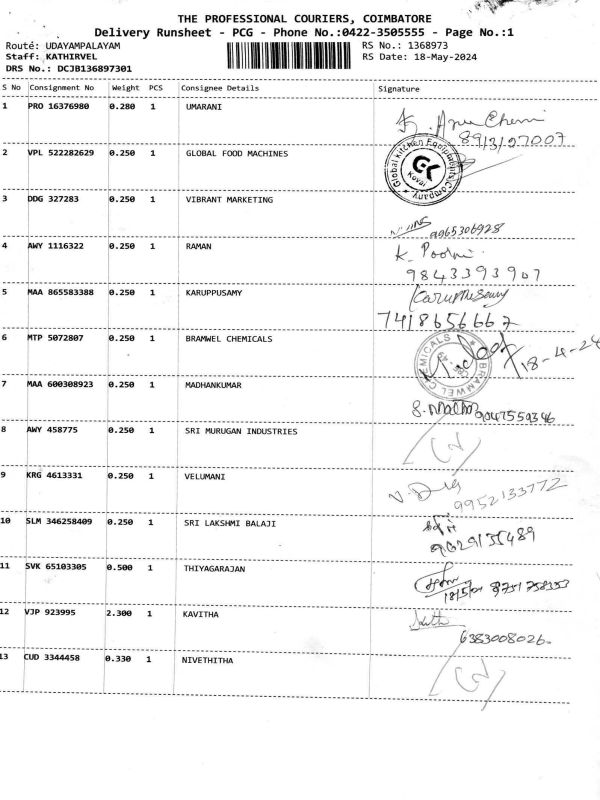 THE PROFESSIONAL COURIERS, COIMBATORE
Delivery Runsheet - PCG - Phone No.:0422-3505555 - Page No.:1
Route: UDAYAMPALAYAM
Staff: KATHIRVEL
DRS No.: DCJB136897301
RS No.: 1368973
RS Date: 18-May-2024
S No Consignment No Weight PCS Consignee Details Signature
1 PRO 16376980 0.280 1 UMARANI
2 VPL 522282629 0.250 1 GLOBAL FOOD MACHINES
Global Kitchen Equipments Company
GK
Kovai
3 DDG 327283 0.250 1 VIBRANT MARKETING
9965306928
4 AWY 1116322 0.250 1 RAMAN
K. Poorni
9843393907
5 MAA 865583388 0.250 1 KARUPPUSAMY
7418656667
6 MTP 5072807 0.250 1 BRAMWEL CHEMICALS
BRAMWEL CHEMICALS
18-4-24
7 MAA 600308923 0.250 1 MADHANKUMAR
8 AWY 458775 0.250 1 SRI MURUGAN INDUSTRIES
9 KRG 4613331 0.250 1 VELUMANI
9952133772
10 SLM 346258409 0.250 1 SRI LAKSHMI BALAJI
11 SVK 65103305 0.500 1 THIYAGARAJAN
12 VJP 923995 2.300 1 KAVITHA
6383008026
13 CUD 3344458 0.330 1 NIVETHITHA